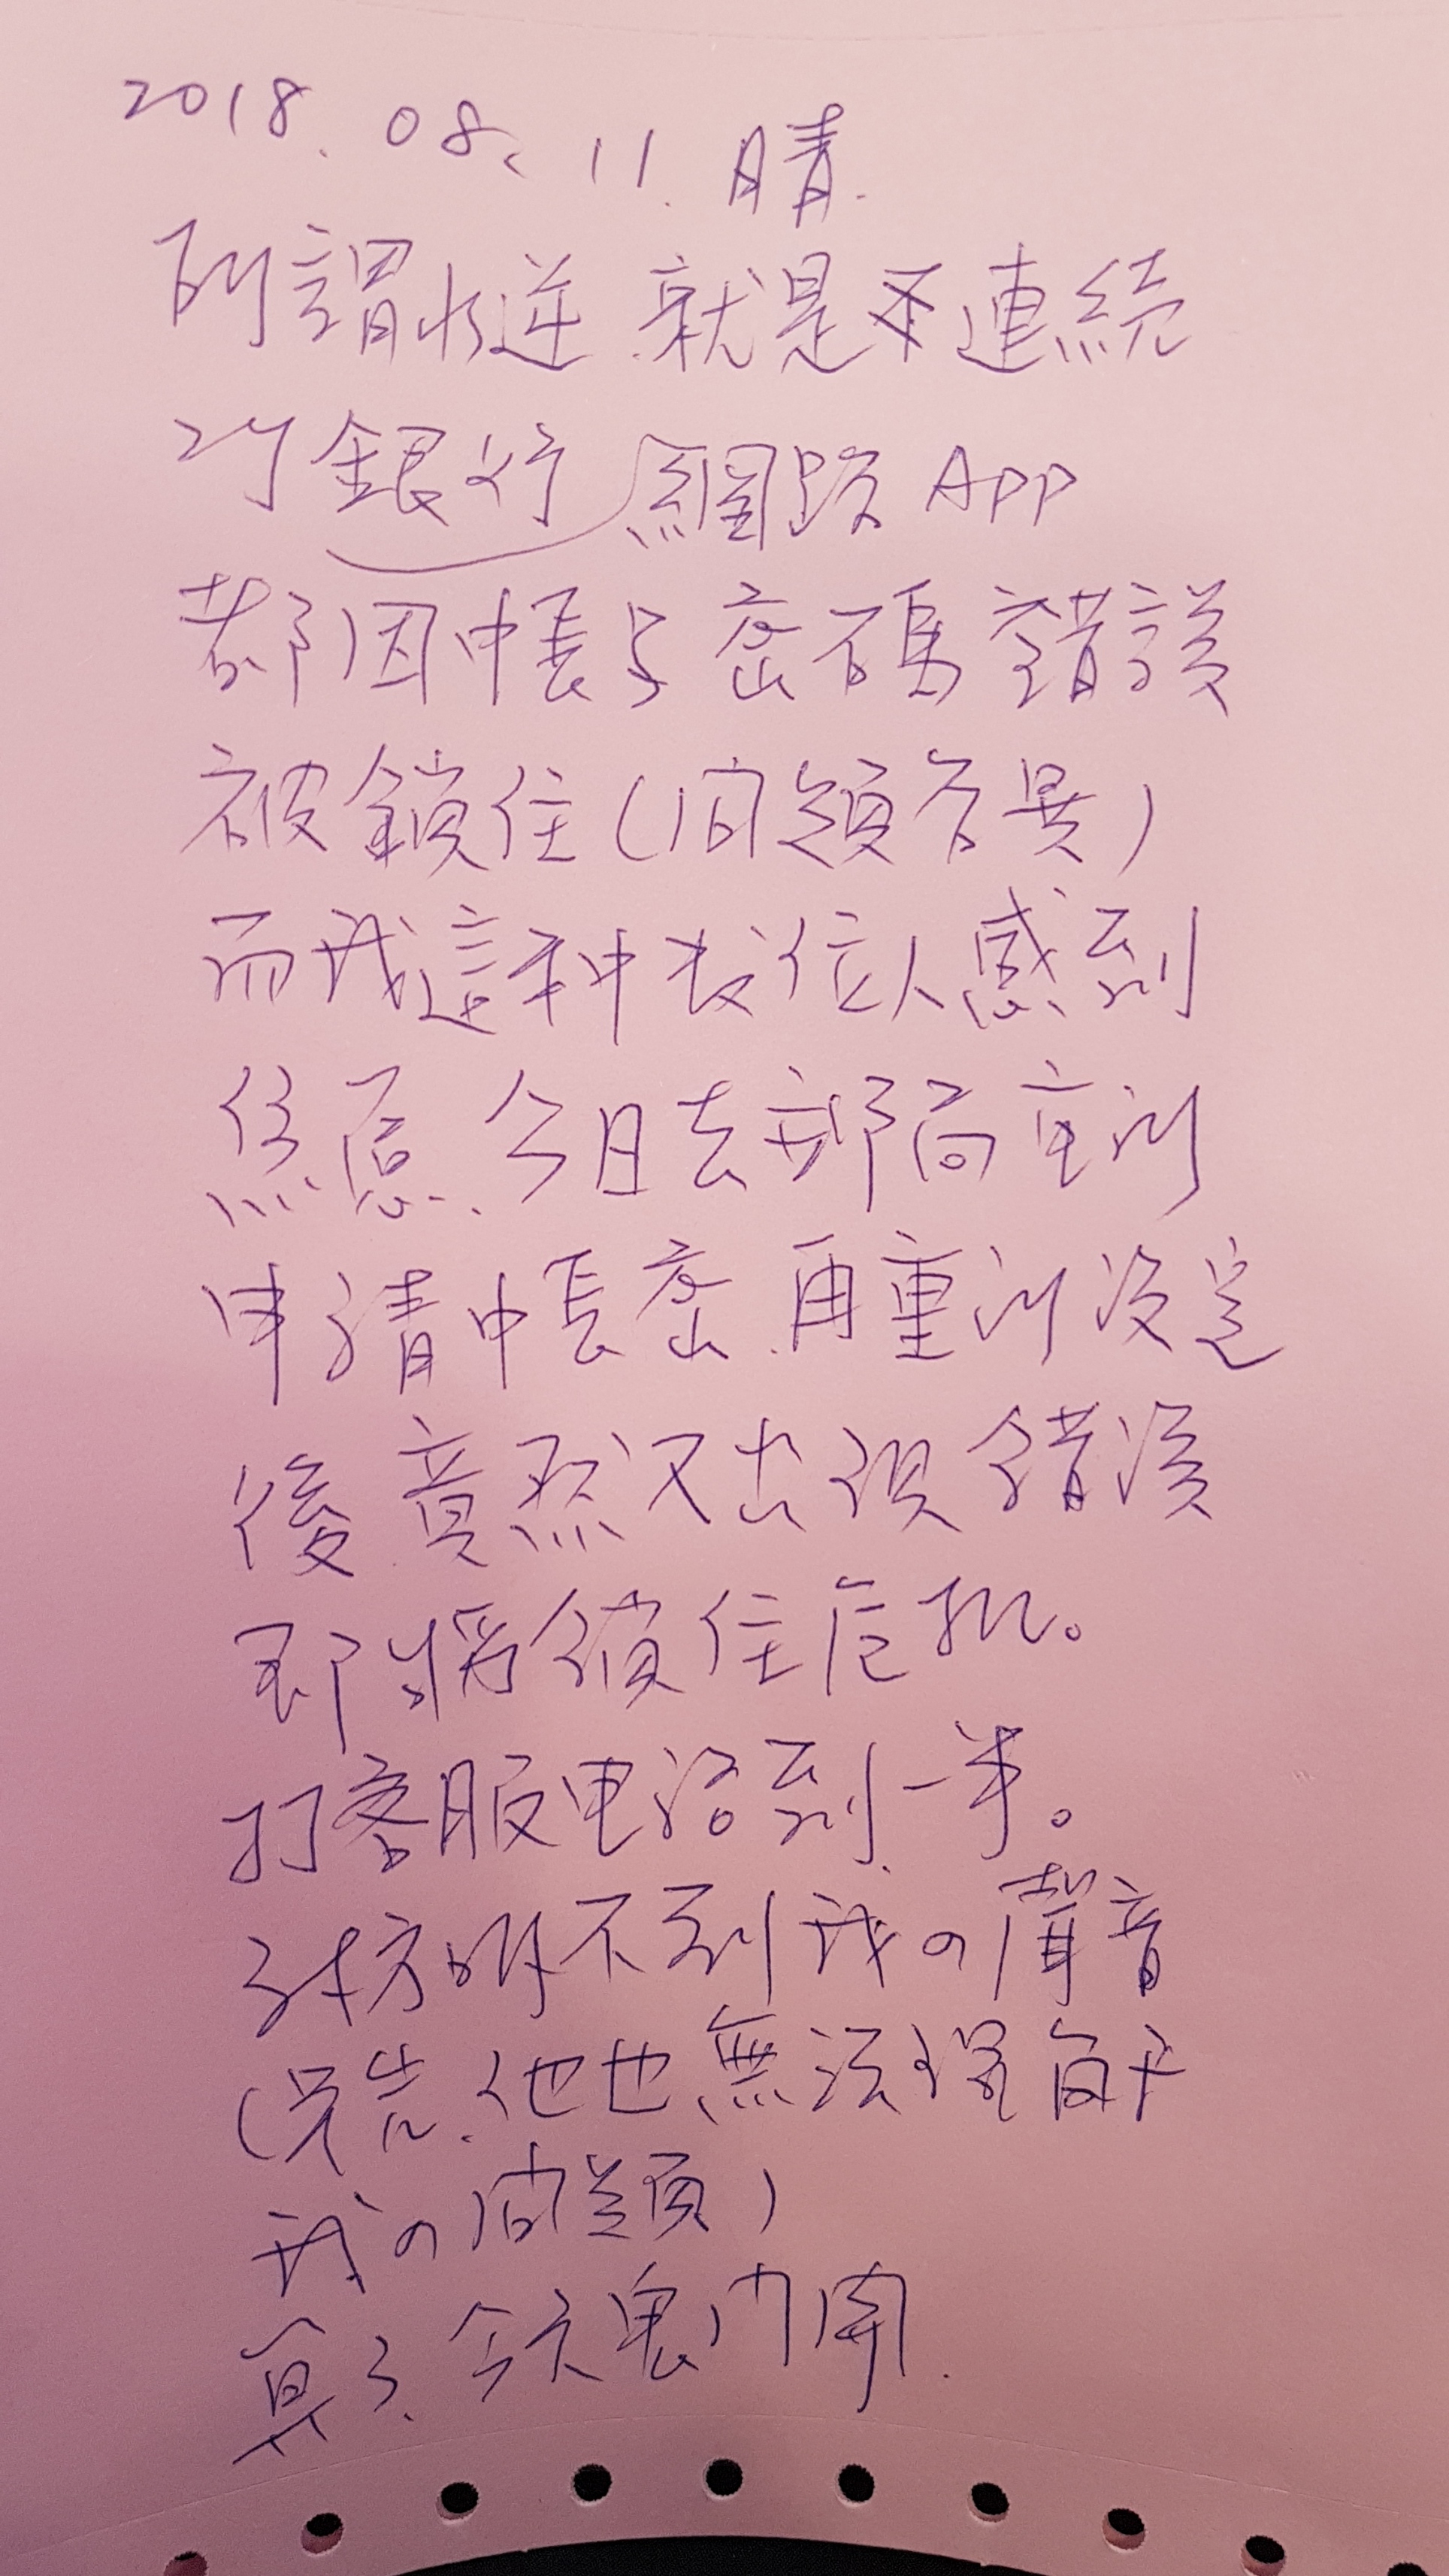 2018.08.11.晴.
所謂水逆.就是不連續
2个銀行網路App
都因帳号密碼錯誤
被鎖住(問題各異)
而我這种数位人感到
焦慮.今日去郵局重新
申請帳密.再重新設定
後竟然又出現錯誤
即將鎖住危机。
打客服電話到一半。
对方听不到我の聲音
(只告.他也無法理解
我の問題)
算了.今天鬼門開.